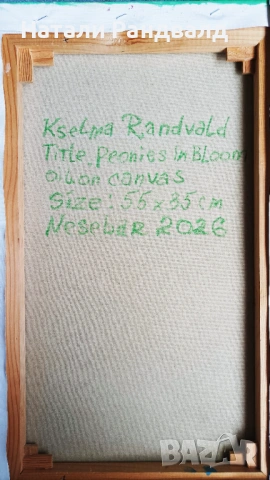 Натали Рандвалд
Kselma Randvald
Title. Peonies in Bloom
oil on canvas
Size: 55 x 35 cm
Nesebar 2026
BAZAR